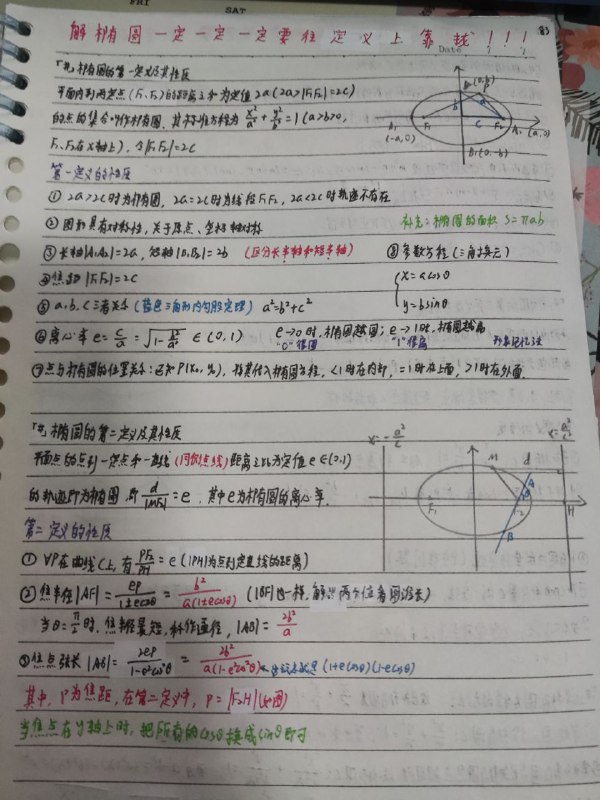 FRI
SAT
解椭圆一定一定一定要往定义上靠拢!!!
Date
83
「光」椭圆的第一定义及其性质
平面内到两定点(F₁、F₂)的距离之和为定值2a(2a>|F₁F₂|=2c)
的点的集合叫作椭圆。其标准方程为 x²/a² + y²/b² = 1 (a>b>0,
F₁、F₂在x轴上),令|F₁F₂|=2c
B₂ (0,b)
b a
F₁ c F₂
A₁ (-a,0)
A₂ (a,0)
B₁(0,-b)
第一定义的性质
① 2a>2c时为椭圆,2a=2c时为线段F₁F₂,2a<2c时轨迹不存在
② 图形具有对称性,关于原点、坐标轴对称
补充:椭圆的面积 S=πab
③ 长轴|A₁A₂|=2a,短轴|B₁B₂|=2b (区分长半轴和短半轴)
⑧ 参数方程(三角换元)
④ 焦距|F₁F₂|=2c
{ x=acosθ
y=bsinθ
⑤ a、b、c三者关系(蓝色三角形内勾股定理) a²=b²+c²
⑥ 离心率 e=c/a=√(1-b²/a²) ∈(0,1) e→0时,椭圆越圆;e→1时,椭圆越扁
"0"很圆 "1"很扁 形象记忆法
⑦ 点与椭圆的位置关系:已知P(x₀,y₀),将其代入椭圆方程,<1时在内部,=1时在上面,>1时在外面.
「光」椭圆的第二定义及其性质
平面点的点到一定点和一直线(同侧点线)距离之比为定值e∈(0,1)
的轨迹即为椭圆,即 d/|MF₂| = e,其中e为椭圆的离心率.
x=-a²/c
x=a²/c
M d
A
F₁ F₂ H
B
第二定义的性质
① ∀P在曲线C上,有 PF₂/PH = e (|PH|为点到定直线的距离)
② 焦半径|AF|= ep/(1±ecosθ) = b²/a(1±ecosθ) (|BF|也一样,解出两个位看图游去)
当θ=π/2时,焦半径最短,称作通径,|AB|= 2b²/a
③ 焦点弦长|AB|= 2ep/(1-e²cos²θ) = 2b²/a(1-e²cos²θ) (1+ecosθ)(1-ecosθ)
其中,P为焦距,在第二定义中,P=|F₂H|(如图)
当焦点在y轴上时,把所有的cosθ换成sinθ即可